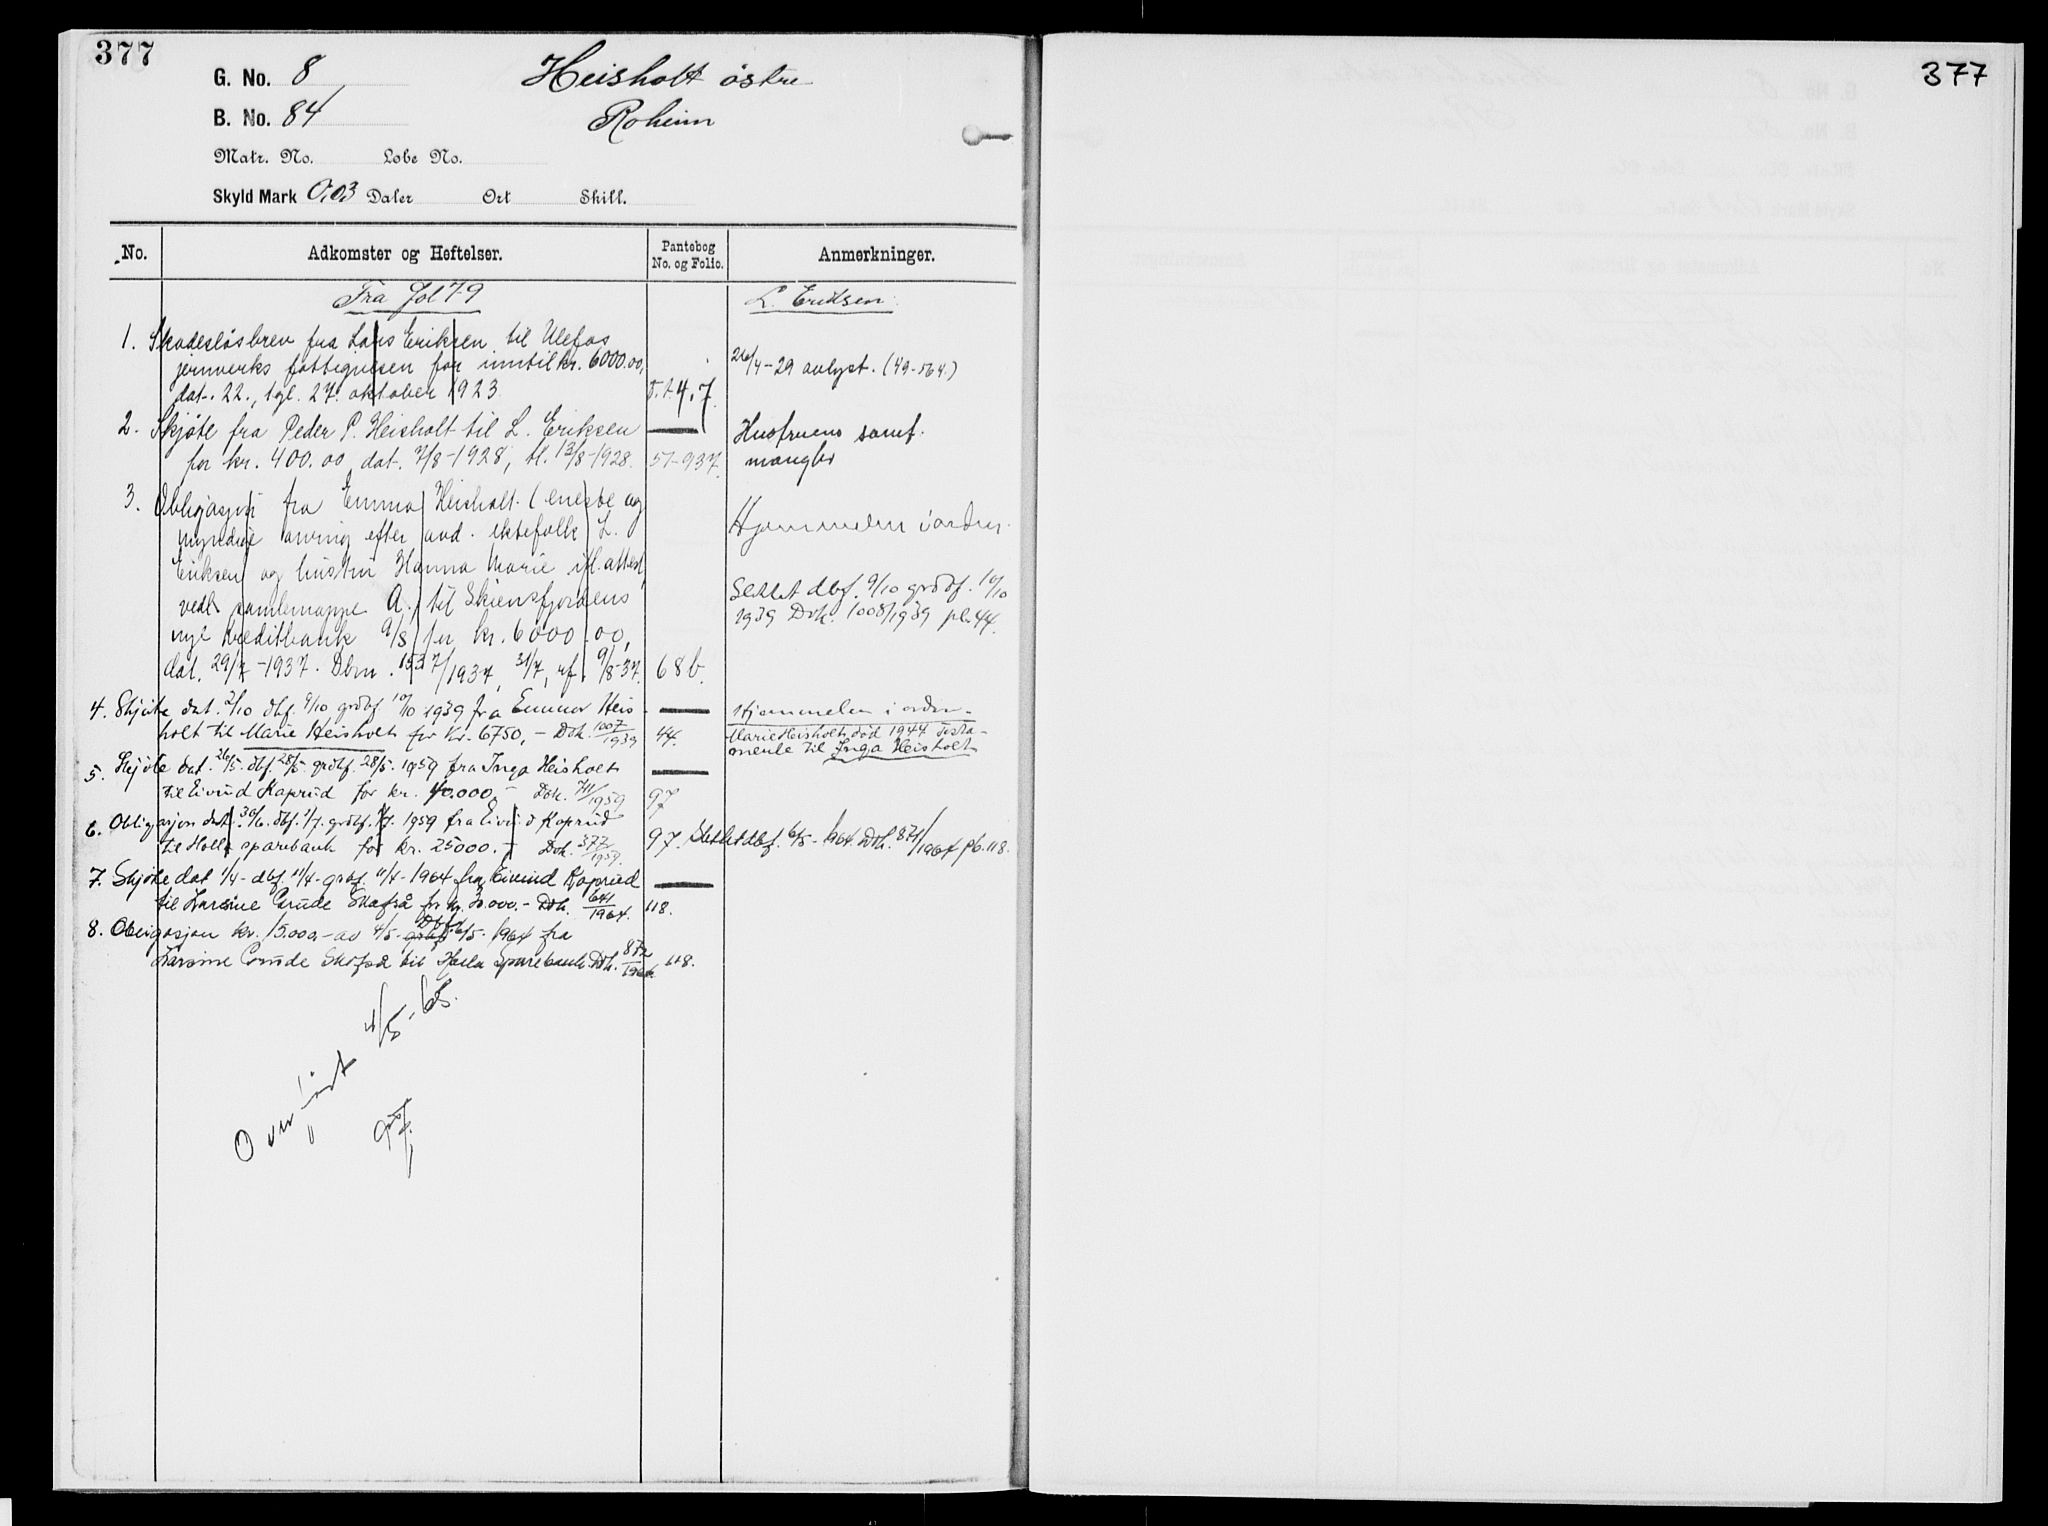 377
G. No. 8 Heisholt östre
B. No. 84 Roheim
Matr. No. Løbe No.
Skyld Mark 0,03 Daler Ort Skill.
No. Adkomster og Heftelser. Pantebog No. og Folio. Anmerkninger.
Fra fol 79 L. Eriksen
1. Skadeslösbrev fra Lars Eriksen til Ulefos
jernverks fattigvesen for inntil kr. 6000.00, 26/4-29 avlyst. (49-564.)
dat. 22., tgl. 27. oktober 1923 47
2. Skjöte fra Peder P. Heisholt til L. Eriksen Husfruens samt.
for kr. 400.00 dat. 7/8-1928, tl. 13/8-1928. 51-937. mangler
3. Obligasjon fra Emma Heisholt (eneste og
myndig arving efter avd. ektefolk L. Hjemmelen i orden.
Eriksen og hustru Hanna Marie ifl. attest,
vedl. samlemappe A.) til Skiensfjordens Slettet dbf. 9/10 grdbf. 10/10
nye kreditbank 9/8 for kr. 6000.00, 1939 Dok. 1008/1939 pb. 44.
dat. 29/7-1937. Dbnr. 1537/1937, 31/7, rf. 9/8-37. 68b.
4. Skjöte dat. 2/10 dbf. 9/10 grdbf. 10/10 1939 fra Emma Heis- Hjemmelen i orden.
holt til Marie Heisholt for kr. 6750,- Dok. 1007/1939 44. Marie Heisholt död 1944 testa-
mente til Inga Heisholt
5. Skjöte dat. 26/5. dbf. 28/5. grdbf. 28/5. 1959 fra Inga Heisholt
til Eivind Kaprud for kr. 40.000.- Dok. 741/1959 97
6. Obligasjon dat. 30/6. dbf. 1/7. grdbf. 1/7. 1959 fra Eivind Kaprud
til Holla sparebank for kr. 25000.- Dok. 377/1959. 97. Slettet dbf. 6/5-1964. Dok. 871/1964 pb. 118.
7. Skjöte dat 1/4- dbf. 11/4- grdbf 11/4-1964 fra Eivind Kaprud
til Karsine Gunde Skofså for kr. 30.000.- Dok. 641/1964. 118.
8. Obligasjon kr. 15.000,- av 4/5- Dbf. 6/5- 1964 fra
Karsine Gunde Skofså til Holla Sparebank Dok. 872/1964 118.
Overfört 4/5-65.
377